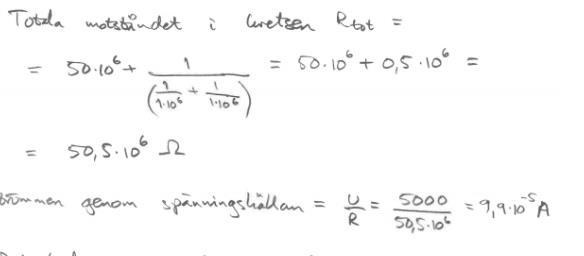 Totala motståndet i kretsen Rtot =
= 50·10⁶ + 1/(1/1·10⁶ + 1/1·10⁶) = 50·10⁶ + 0,5·10⁶ =
= 50,5·10⁶ Ω
genom spänningskällan = U/R = 5000/50,5·10⁶ = 9,9·10⁻⁵ A